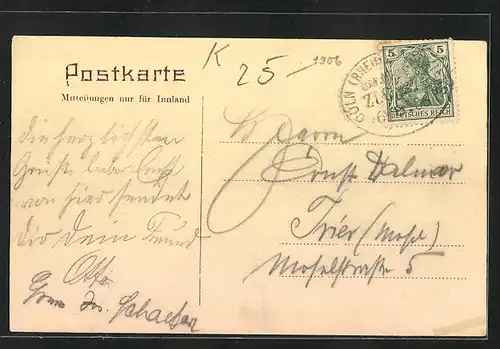 K
25 -
1906
Postkarte
Mitteilungen nur für Innland
5 5
DEUTSCHES REICH
CÖLN (RHEIN)
ZUG
Die herzlichsten
Grüße lieber Ernst
von hier sendet
dir dein Freund
Otto
Jos. Schaefer
Herrn
Ernst Dalmar
Trier (Mosel)
Moselstrasse 5